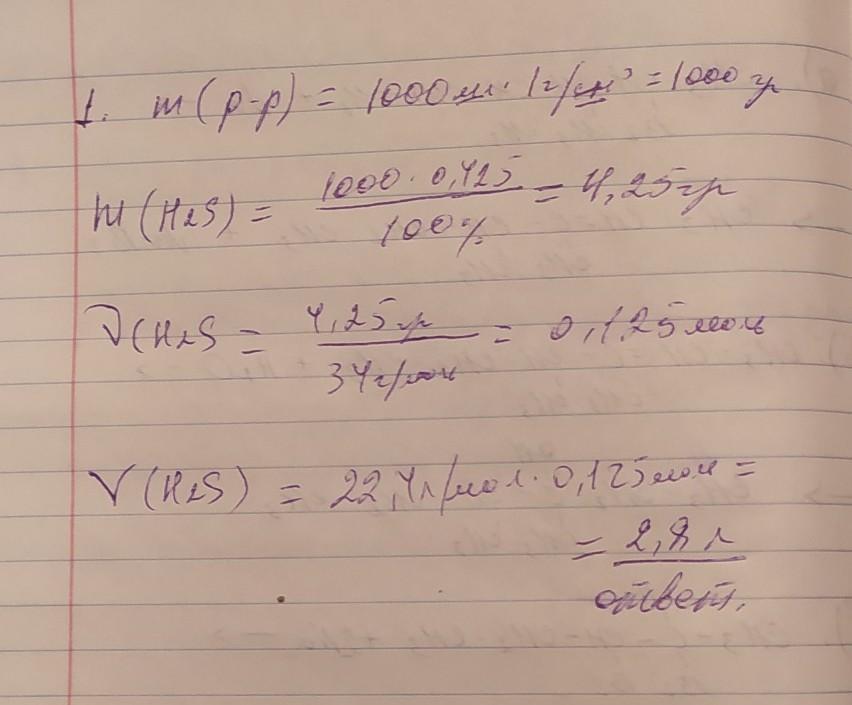 1. m(р-р) = 1000мл · 1г/см³ = 1000 гр
m(H2S) = 1000 · 0,425 / 100% = 4,25гр
ν(H2S = 4,25гр / 34г/моль = 0,125моль
V(H2S) = 22,4л/мол · 0,125моль =
= 2,8 л
ответ.